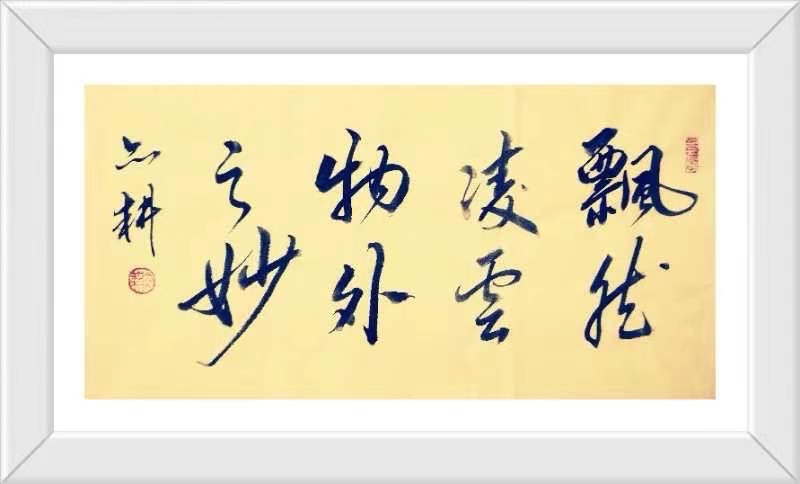 飄然
凌雲
物外
之妙